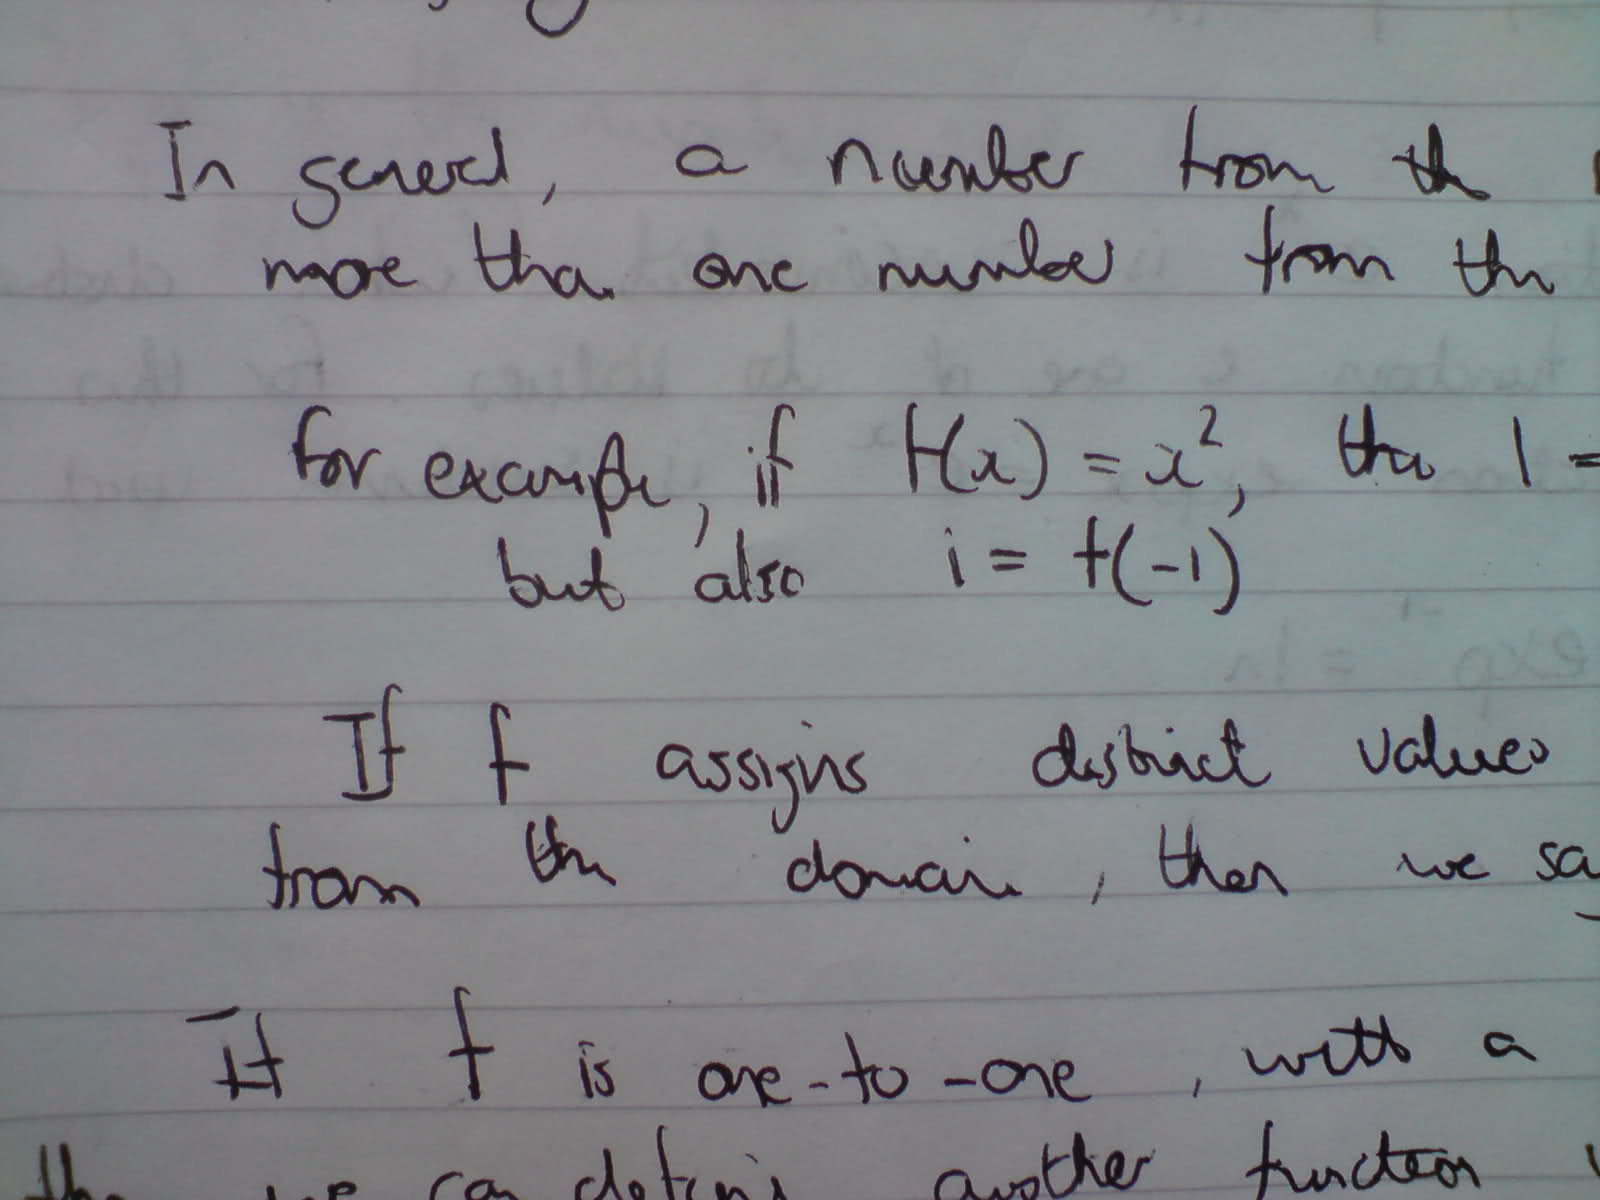 In general, a number from the
more than one number from the
for example, if f(x) = x², then 1 =
but also 1 = f(-1)
If f assigns distinct values
from the domain, then we sa
If f is one-to-one, with a
we can define another function